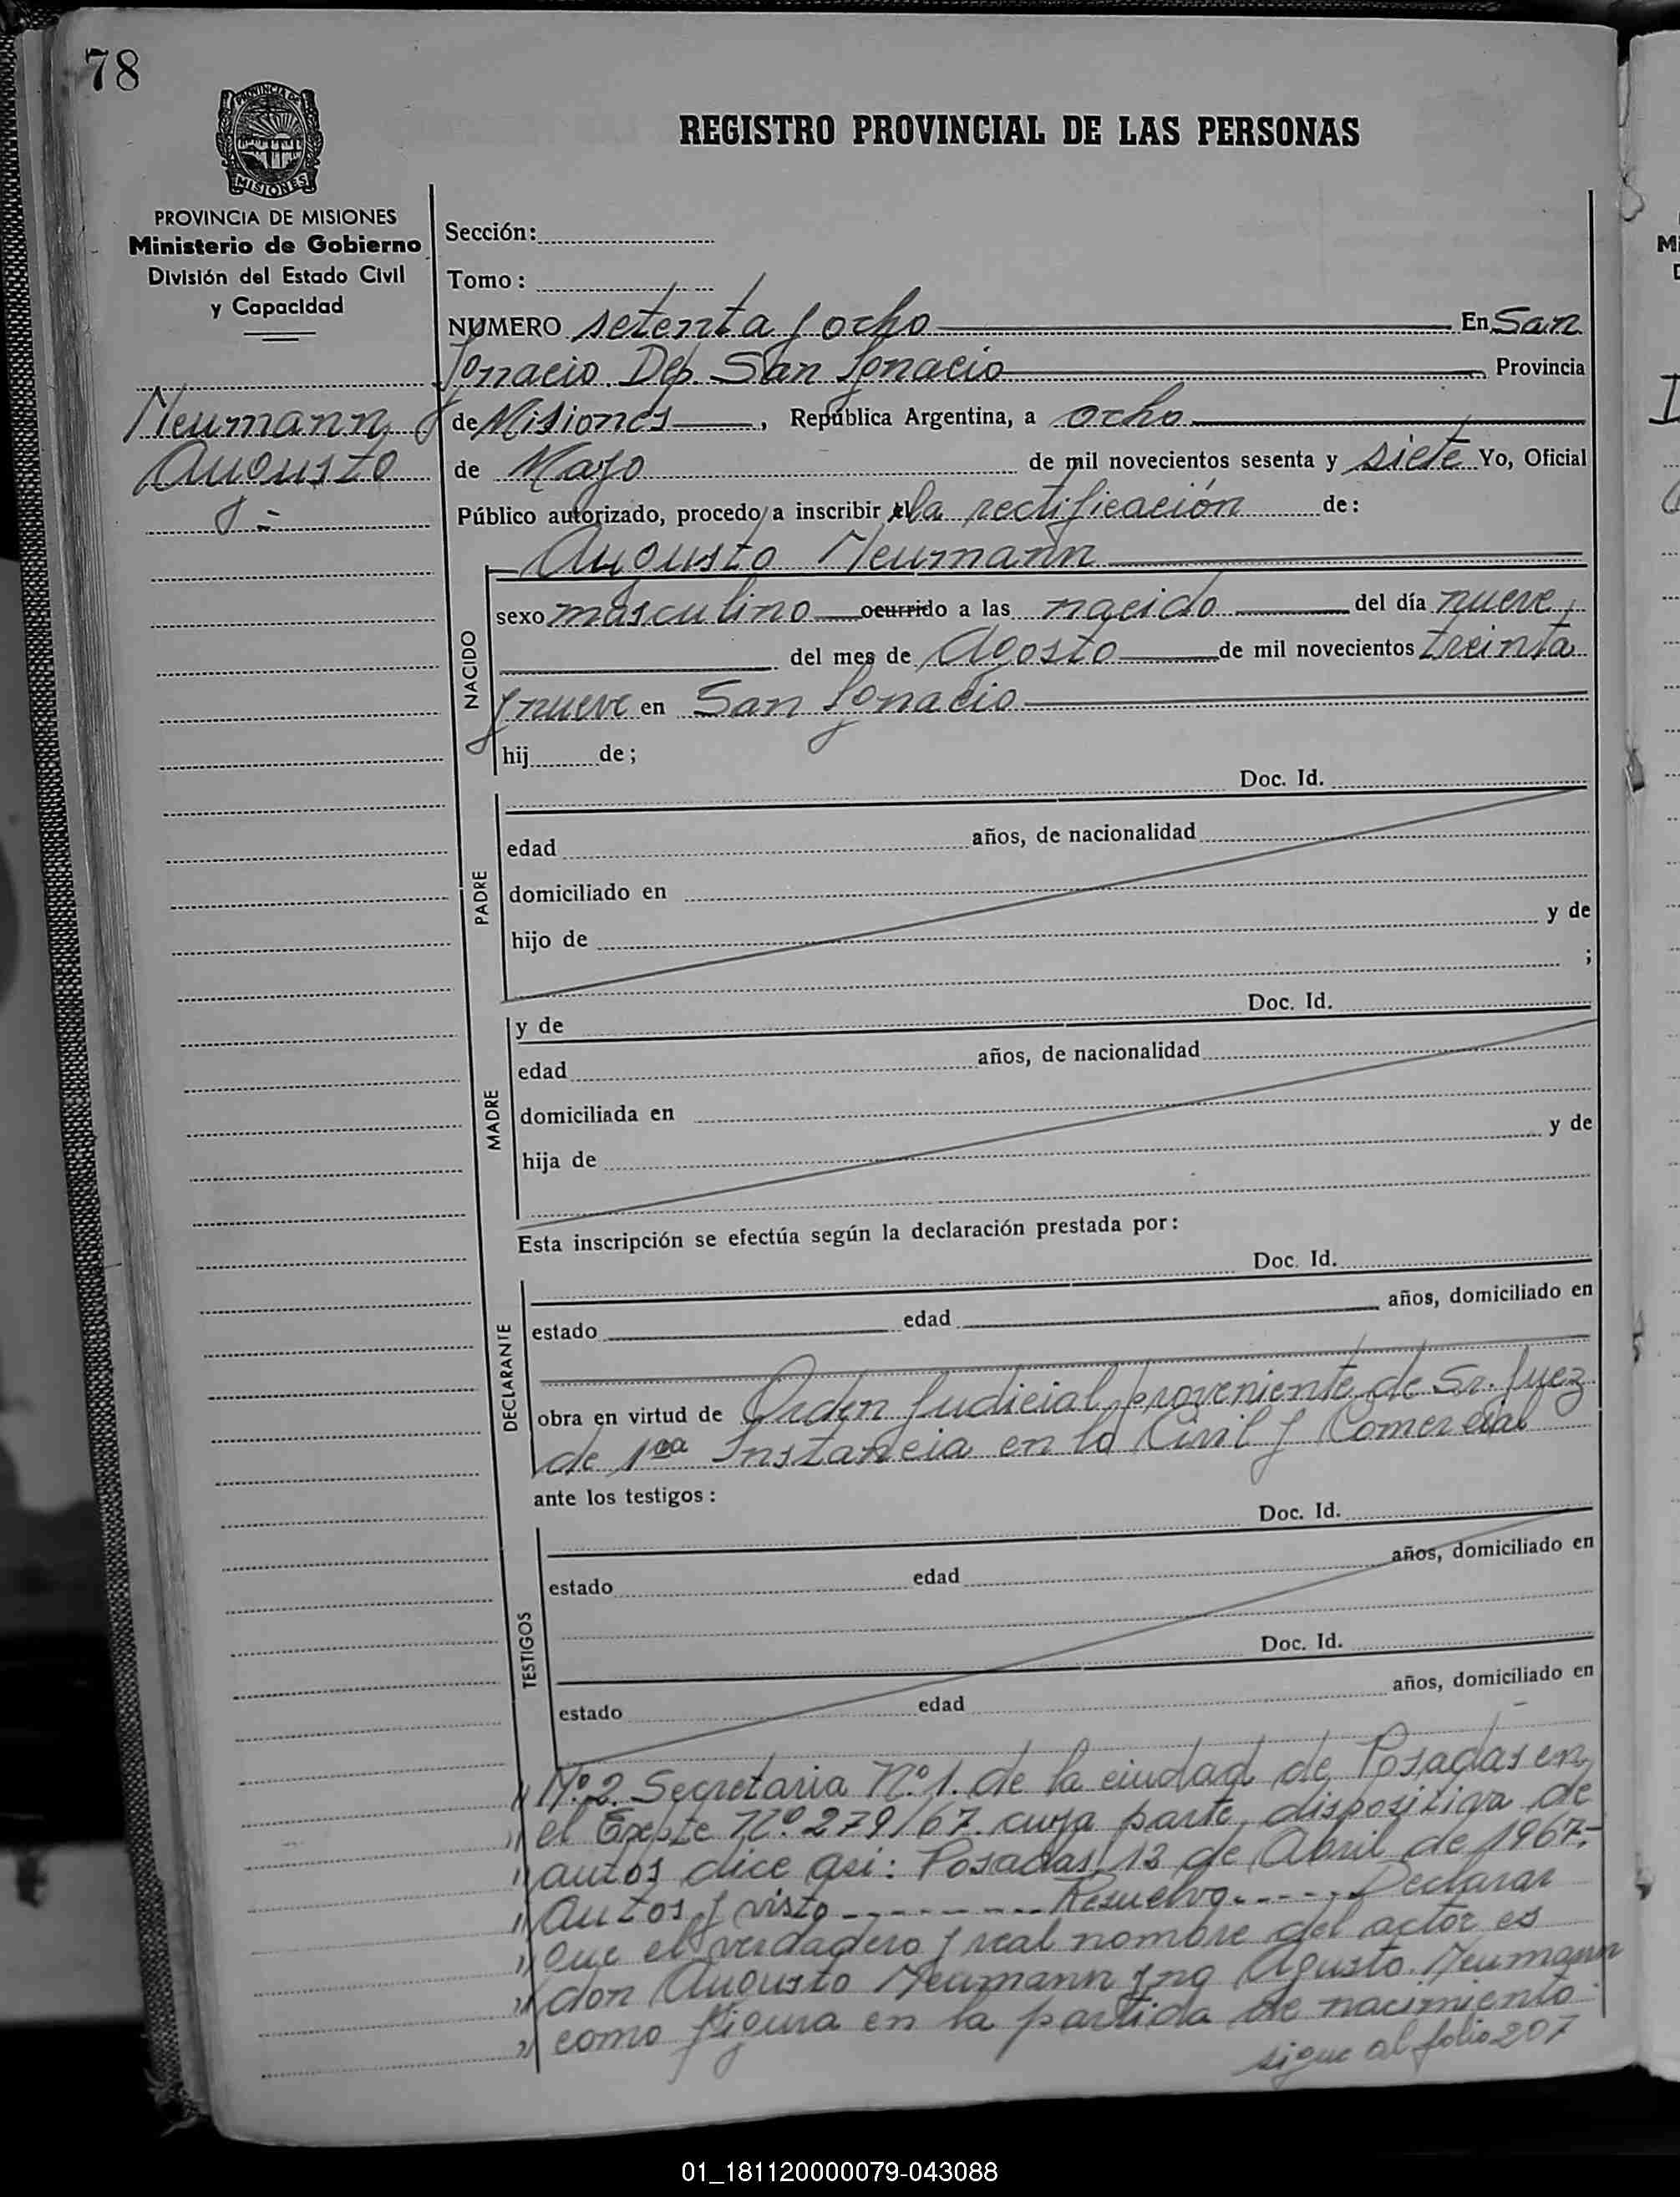 78
PROVINCIA DE
MISIONES
REGISTRO PROVINCIAL DE LAS PERSONAS
PROVINCIA DE MISIONES
Ministerio de Gobierno
División del Estado Civil
y Capacidad
Neumann
Augusto
Sección:
Tomo:
NUMERO setenta y ocho En San
Ignacio. Dep. San Ignacio Provincia
de Misiones, República Argentina, a ocho
de Mayo de mil novecientos sesenta y siete Yo, Oficial
Público autorizado, procedo a inscribir el la rectificación de:
Augusto Neumann
NACIDO
sexo masculino ocurrido a las nacido del día nueve
del mes de Agosto de mil novecientos treinta
y nueve en San Ignacio
hij de;
PADRE
Doc. Id.
edad años, de nacionalidad
domiciliado en
hijo de y de
;
MADRE
y de Doc. Id.
edad años, de nacionalidad
domiciliada en
hija de y de
Esta inscripción se efectúa según la declaración prestada por:
DECLARANTE
Doc. Id.
estado edad años, domiciliado en
obra en virtud de Orden Judicial, proveniente de Sr. Juez
de 1ra Instancia en lo Civil y Comercial
ante los testigos:
TESTIGOS
Doc. Id.
estado edad años, domiciliado en
Doc. Id.
estado edad años, domiciliado en
" Nº.2. Secretaria Nº.1. de la ciudad de Posadas en
" el Expte Nº.279/67. cuya parte dispositiva de
" autos dice asi: Posadas, 13 de Abril de 1967,-
" Autos y visto --------- Resuelvo.----, Declarar
" que el verdadero y real nombre del actor es
" don Augusto Neumann y no Agusto Neumann
" como figura en la partida de nacimiento
sigue al folio 207
01_181120000079-043088